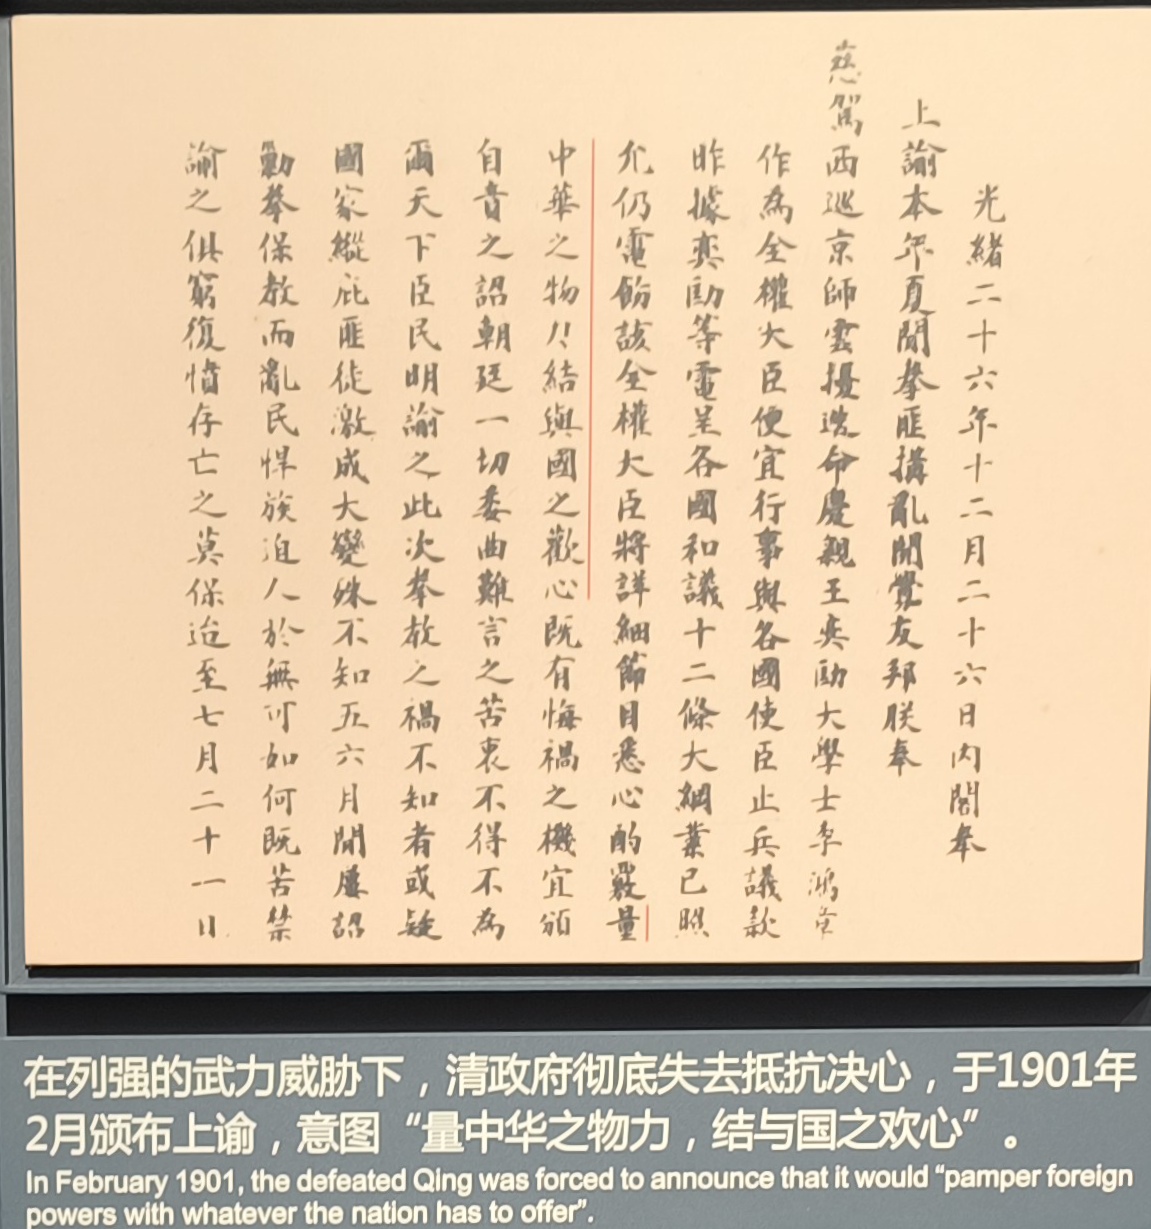 光緒二十六年十二月二十六日内閣奉
上諭本年夏間拳匪搆亂開釁友邦朕奉
慈駕西巡京師雲擾迭命慶親王奕劻大學士李鴻章
作為全權大臣便宜行事與各國使臣止兵議款
昨據奕劻等電呈各國和議十二條大綱業已照
允仍電飭該全權大臣將詳細節目悉心酌覈量
中華之物力結與國之歡心既有悔禍之機宜頒
自責之詔朝廷一切委曲難言之苦衷不得不為
爾天下臣民明諭之此次拳教之禍不知者或疑
國家縱庇匪徒激成大變殊不知五六月間屢詔
勦拳保教而亂民悍族迫人於無可如何既苦禁
諭之俱窮復憤存亡之莫保迨至七月二十一日
在列强的武力威胁下，清政府彻底失去抵抗决心，于1901年
2月颁布上谕，意图“量中华之物力，结与国之欢心”。
In February 1901, the defeated Qing was forced to announce that it would “pamper foreign
powers with whatever the nation has to offer”.